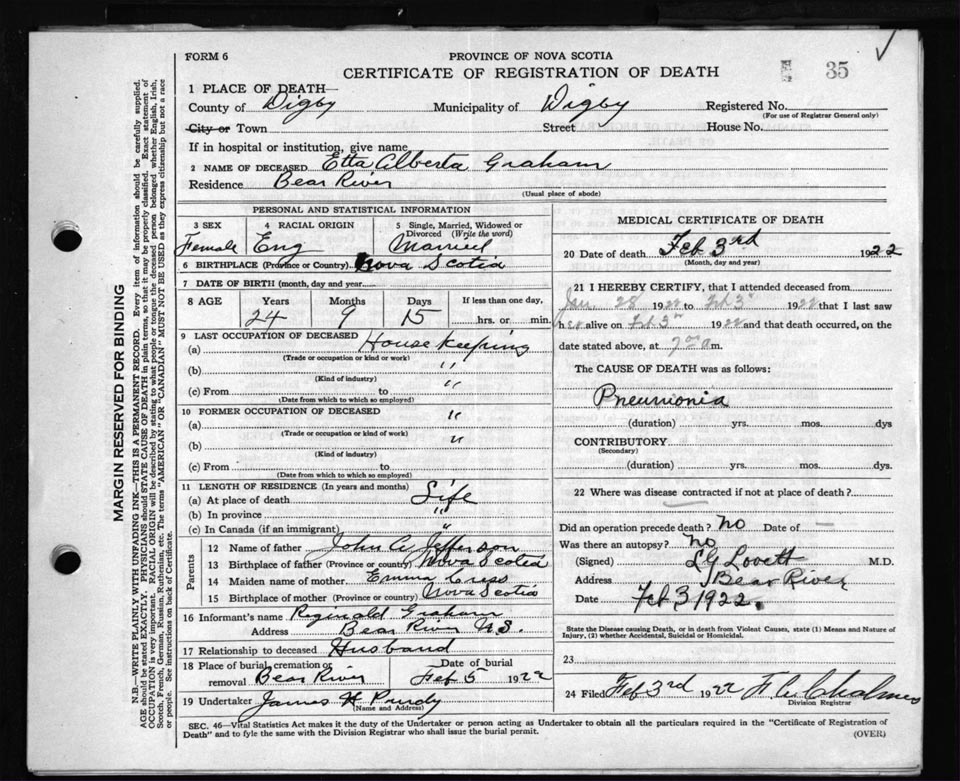 FORM 6
PROVINCE OF NOVA SCOTIA
CERTIFICATE OF REGISTRATION OF DEATH
35
1 PLACE OF DEATH—
County of Digby Municipality of Digby Registered No.
(For use of Registrar General only)
City or Town Street House No.
If in hospital or institution, give name
2 NAME OF DECEASED Etta Alberta Graham
Residence Bear River
(Usual place of abode)
PERSONAL AND STATISTICAL INFORMATION
3 SEX 4 RACIAL ORIGIN 5 Single, Married, Widowed or Divorced (Write the word)
Female Eng Married
6 BIRTHPLACE (Province or Country) Nova Scotia
7 DATE OF BIRTH (month, day and year)
8 AGE Years Months Days If less than one day,
24 9 15 hrs. or min.
9 LAST OCCUPATION OF DECEASED House Keeping
(a)
(Trade or occupation or kind or work)
(b) "
(Kind of industry)
(c) From to "
(Date from which to which so employed)
10 FORMER OCCUPATION OF DECEASED "
(a)
(Trade or occupation or kind of work)
(b) "
(Kind of industry)
(c) From to
(Date from which to which so employed)
11 LENGTH OF RESIDENCE (In years and months)
(a) At place of death Life
(b) In province "
(c) In Canada (if an immigrant) "
Parents
12 Name of father John A Jefferson
13 Birthplace of father (Province or country) Nova Scotia
14 Maiden name of mother Emma
15 Birthplace of mother (Province or country) Nova Scotia
16 Informant's name Reginald Graham
Address Bear River N.S.
17 Relationship to deceased Husband
18 Place of burial, cremation or removal Bear River Date of burial Feb 5 1922
19 Undertaker James H Purdy
(Name and Address)
MEDICAL CERTIFICATE OF DEATH
20 Date of death Feb 3rd 1922
(Month, day and year)
21 I HEREBY CERTIFY, that I attended deceased from
Jan. 28 1922 to Feb 3rd 1922 that I last saw
her alive on Feb 3rd 1922 and that death occurred, on the
date stated above, at 7 00 a m.
The CAUSE OF DEATH was as follows:
Pneumonia
(duration) yrs. mos. dys
CONTRIBUTORY
(Secondary)
(duration) yrs. mos. dys.
22 Where was disease contracted if not at place of death?
Did an operation precede death? No Date of —
Was there an autopsy? No
(Signed) Lovett M.D.
Address Bear River
Date Feb 3 1922.
State the Disease causing Death, or in death from Violent Causes, state (1) Means and Nature of
Injury, (2) whether Accidental, Suicidal or Homicidal.
23
24 Filed Feb 3rd 1922 Chalmers
Division Registrar
SEC. 46—Vital Statistics Act makes it the duty of the Undertaker or person acting as Undertaker to obtain all the particulars required in the "Certificate of Registration of
Death" and to fyle the same with the Division Registrar who shall issue the burial permit.
(OVER)
MARGIN RESERVED FOR BINDING
N.B.—WRITE PLAINLY WITH UNFADING INK—THIS IS A PERMANENT RECORD. Every item of information should be carefully supplied.
AGE should be stated EXACTLY. PHYSICIANS should STATE CAUSE OF DEATH in plain terms, so that it may be properly classified. Exact statement of
OCCUPATION is very important. RACIAL ORIGIN will be described by stating to what people or tongue the deceased person belonged whether English, Irish,
Scotch, French, German, Russian, Ruthenian, etc. The terms "AMERICAN" or "CANADIAN" MUST NOT BE USED as they express citizenship but not a race
or people. See instructions on back of Certificate.